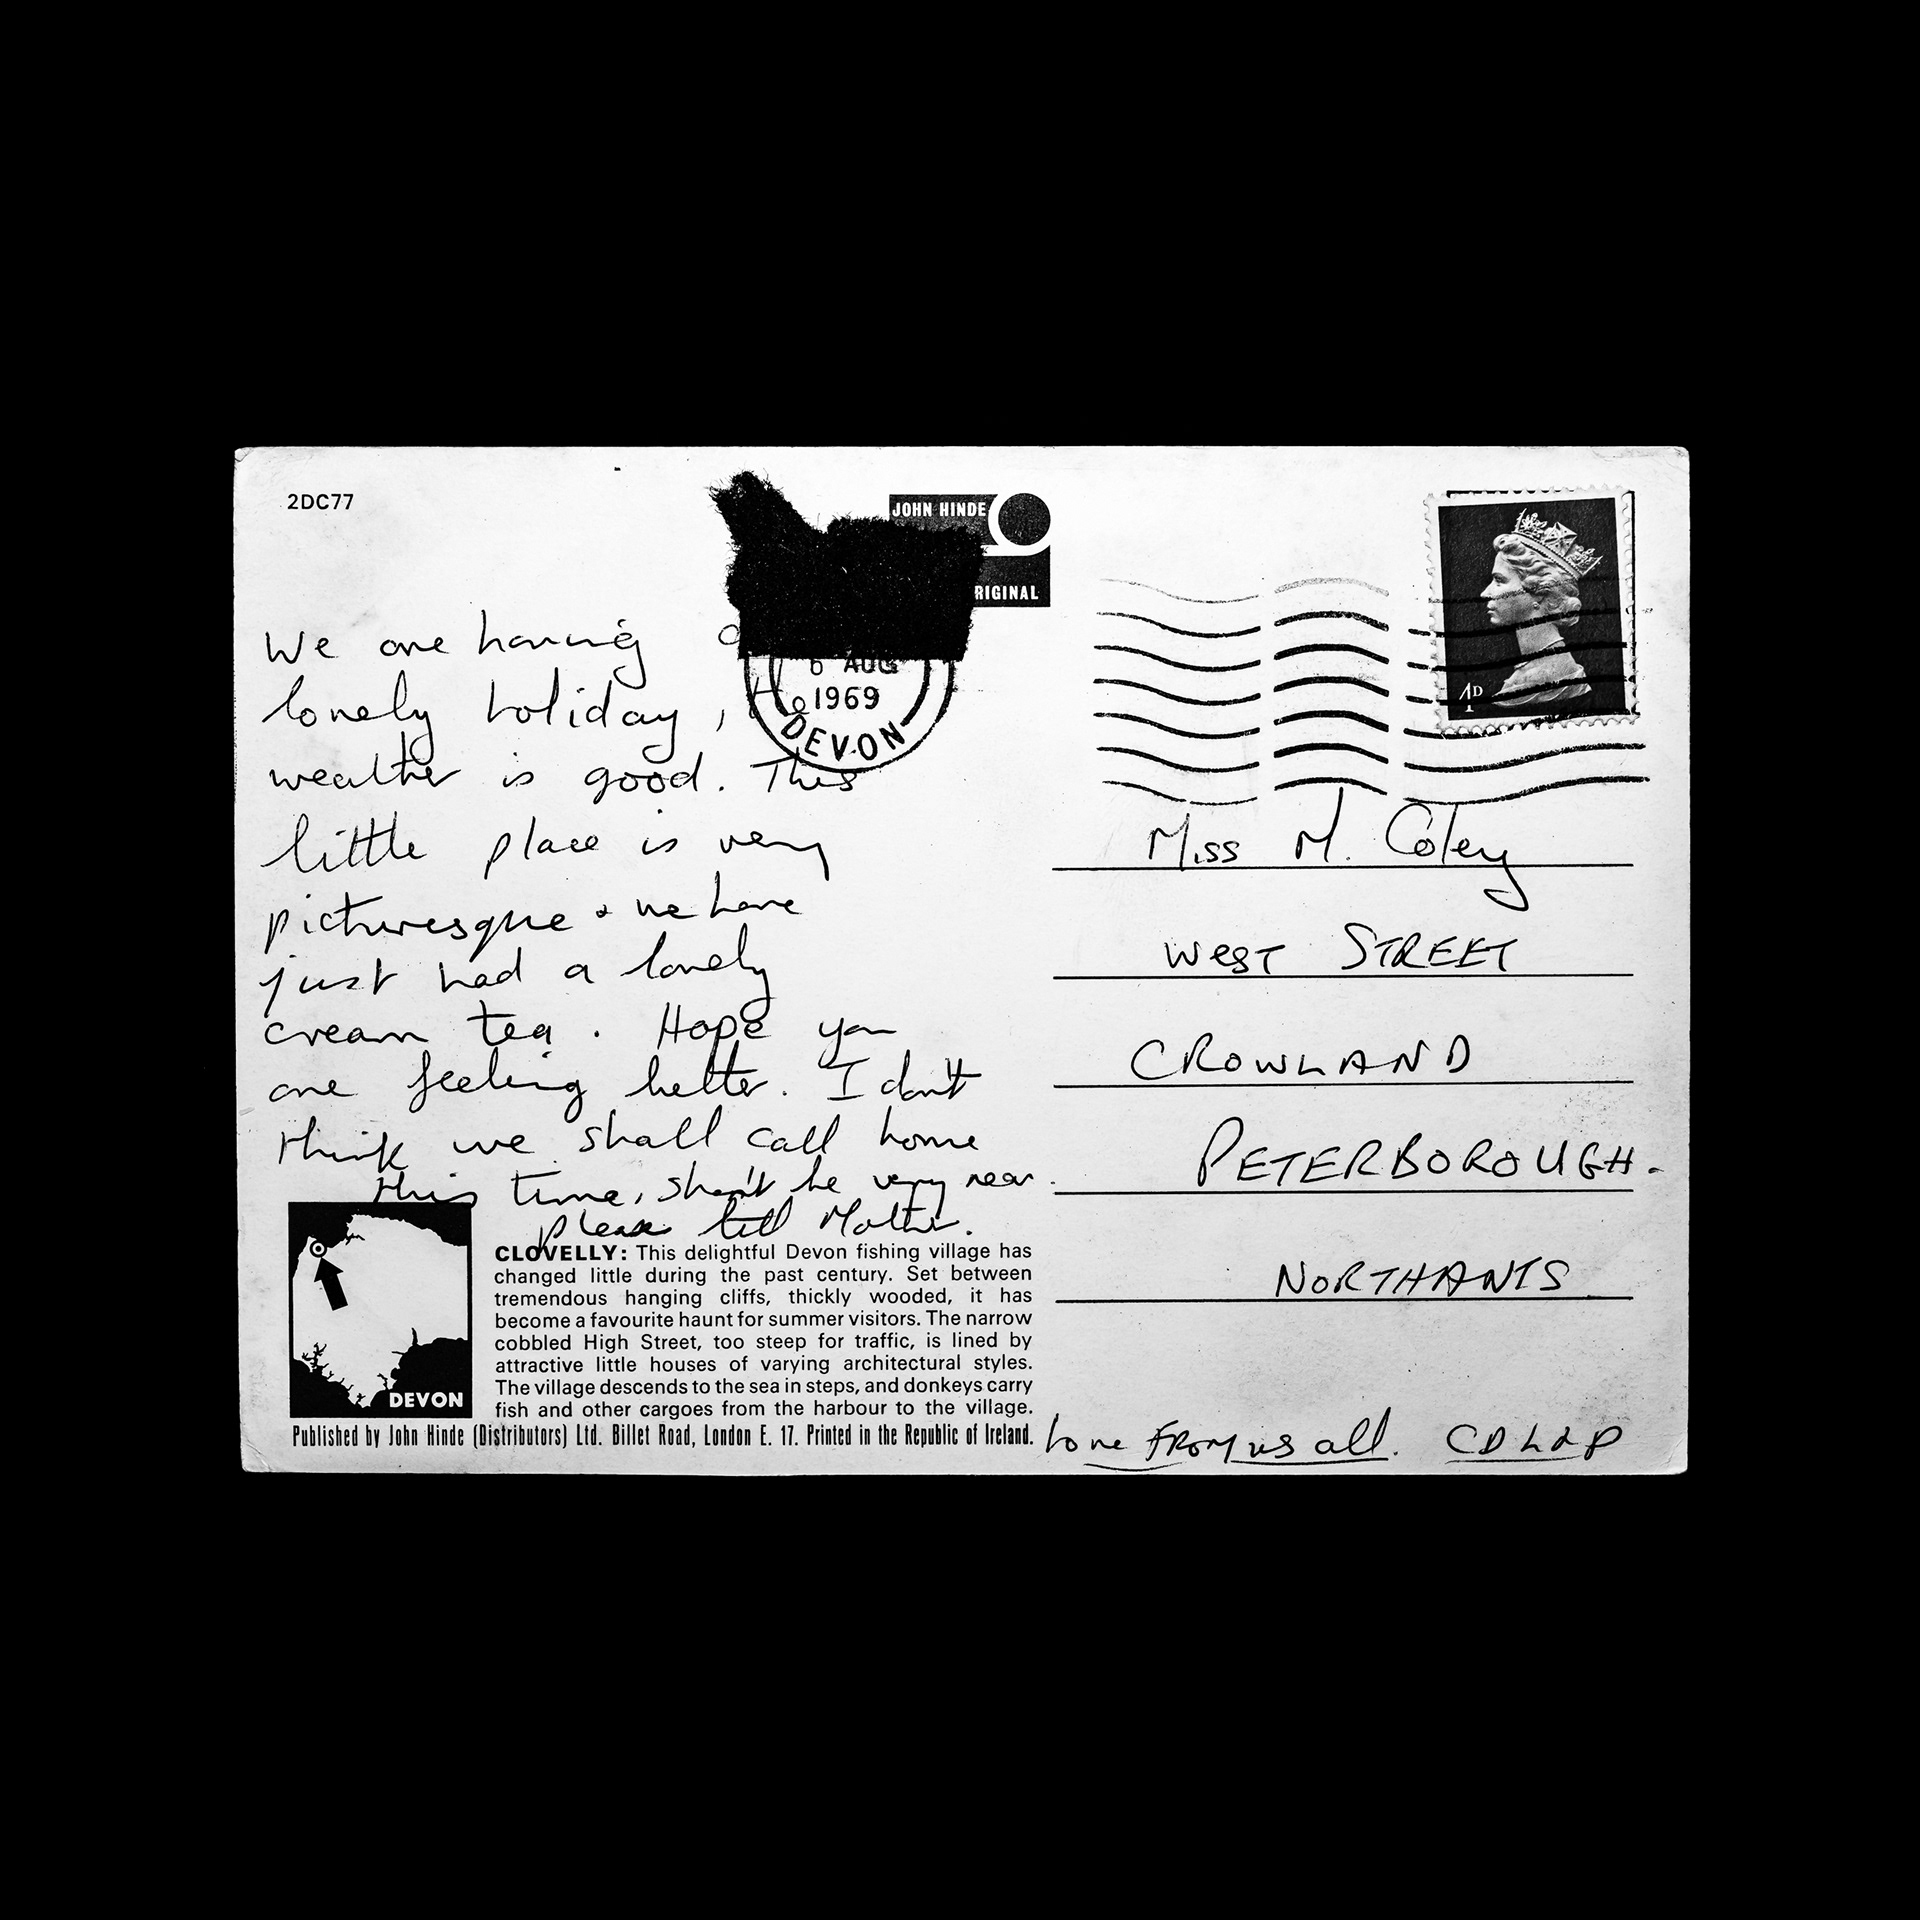 2DC77
JOHN HINDE
RIGINAL
We are having a
lovely holiday, the
weather is good. This
little place is very
picturesque + we have
just had a lovely
cream tea. Hope you
are feeling better. I don't
think we shall call home
this time, shan't be very near.
please tell Mother.
6 AUG
1969
DEVON
4D
Miss M. Coley
WEST STREET
CROWLAND
PETERBOROUGH.
NORTHANTS
DEVON
CLOVELLY: This delightful Devon fishing village has
changed little during the past century. Set between
tremendous hanging cliffs, thickly wooded, it has
become a favourite haunt for summer visitors. The narrow
cobbled High Street, too steep for traffic, is lined by
attractive little houses of varying architectural styles.
The village descends to the sea in steps, and donkeys carry
fish and other cargoes from the harbour to the village.
Published by John Hinde (Distributors) Ltd. Billet Road, London E. 17. Printed in the Republic of Ireland.
Love FROM us all. CDL&P